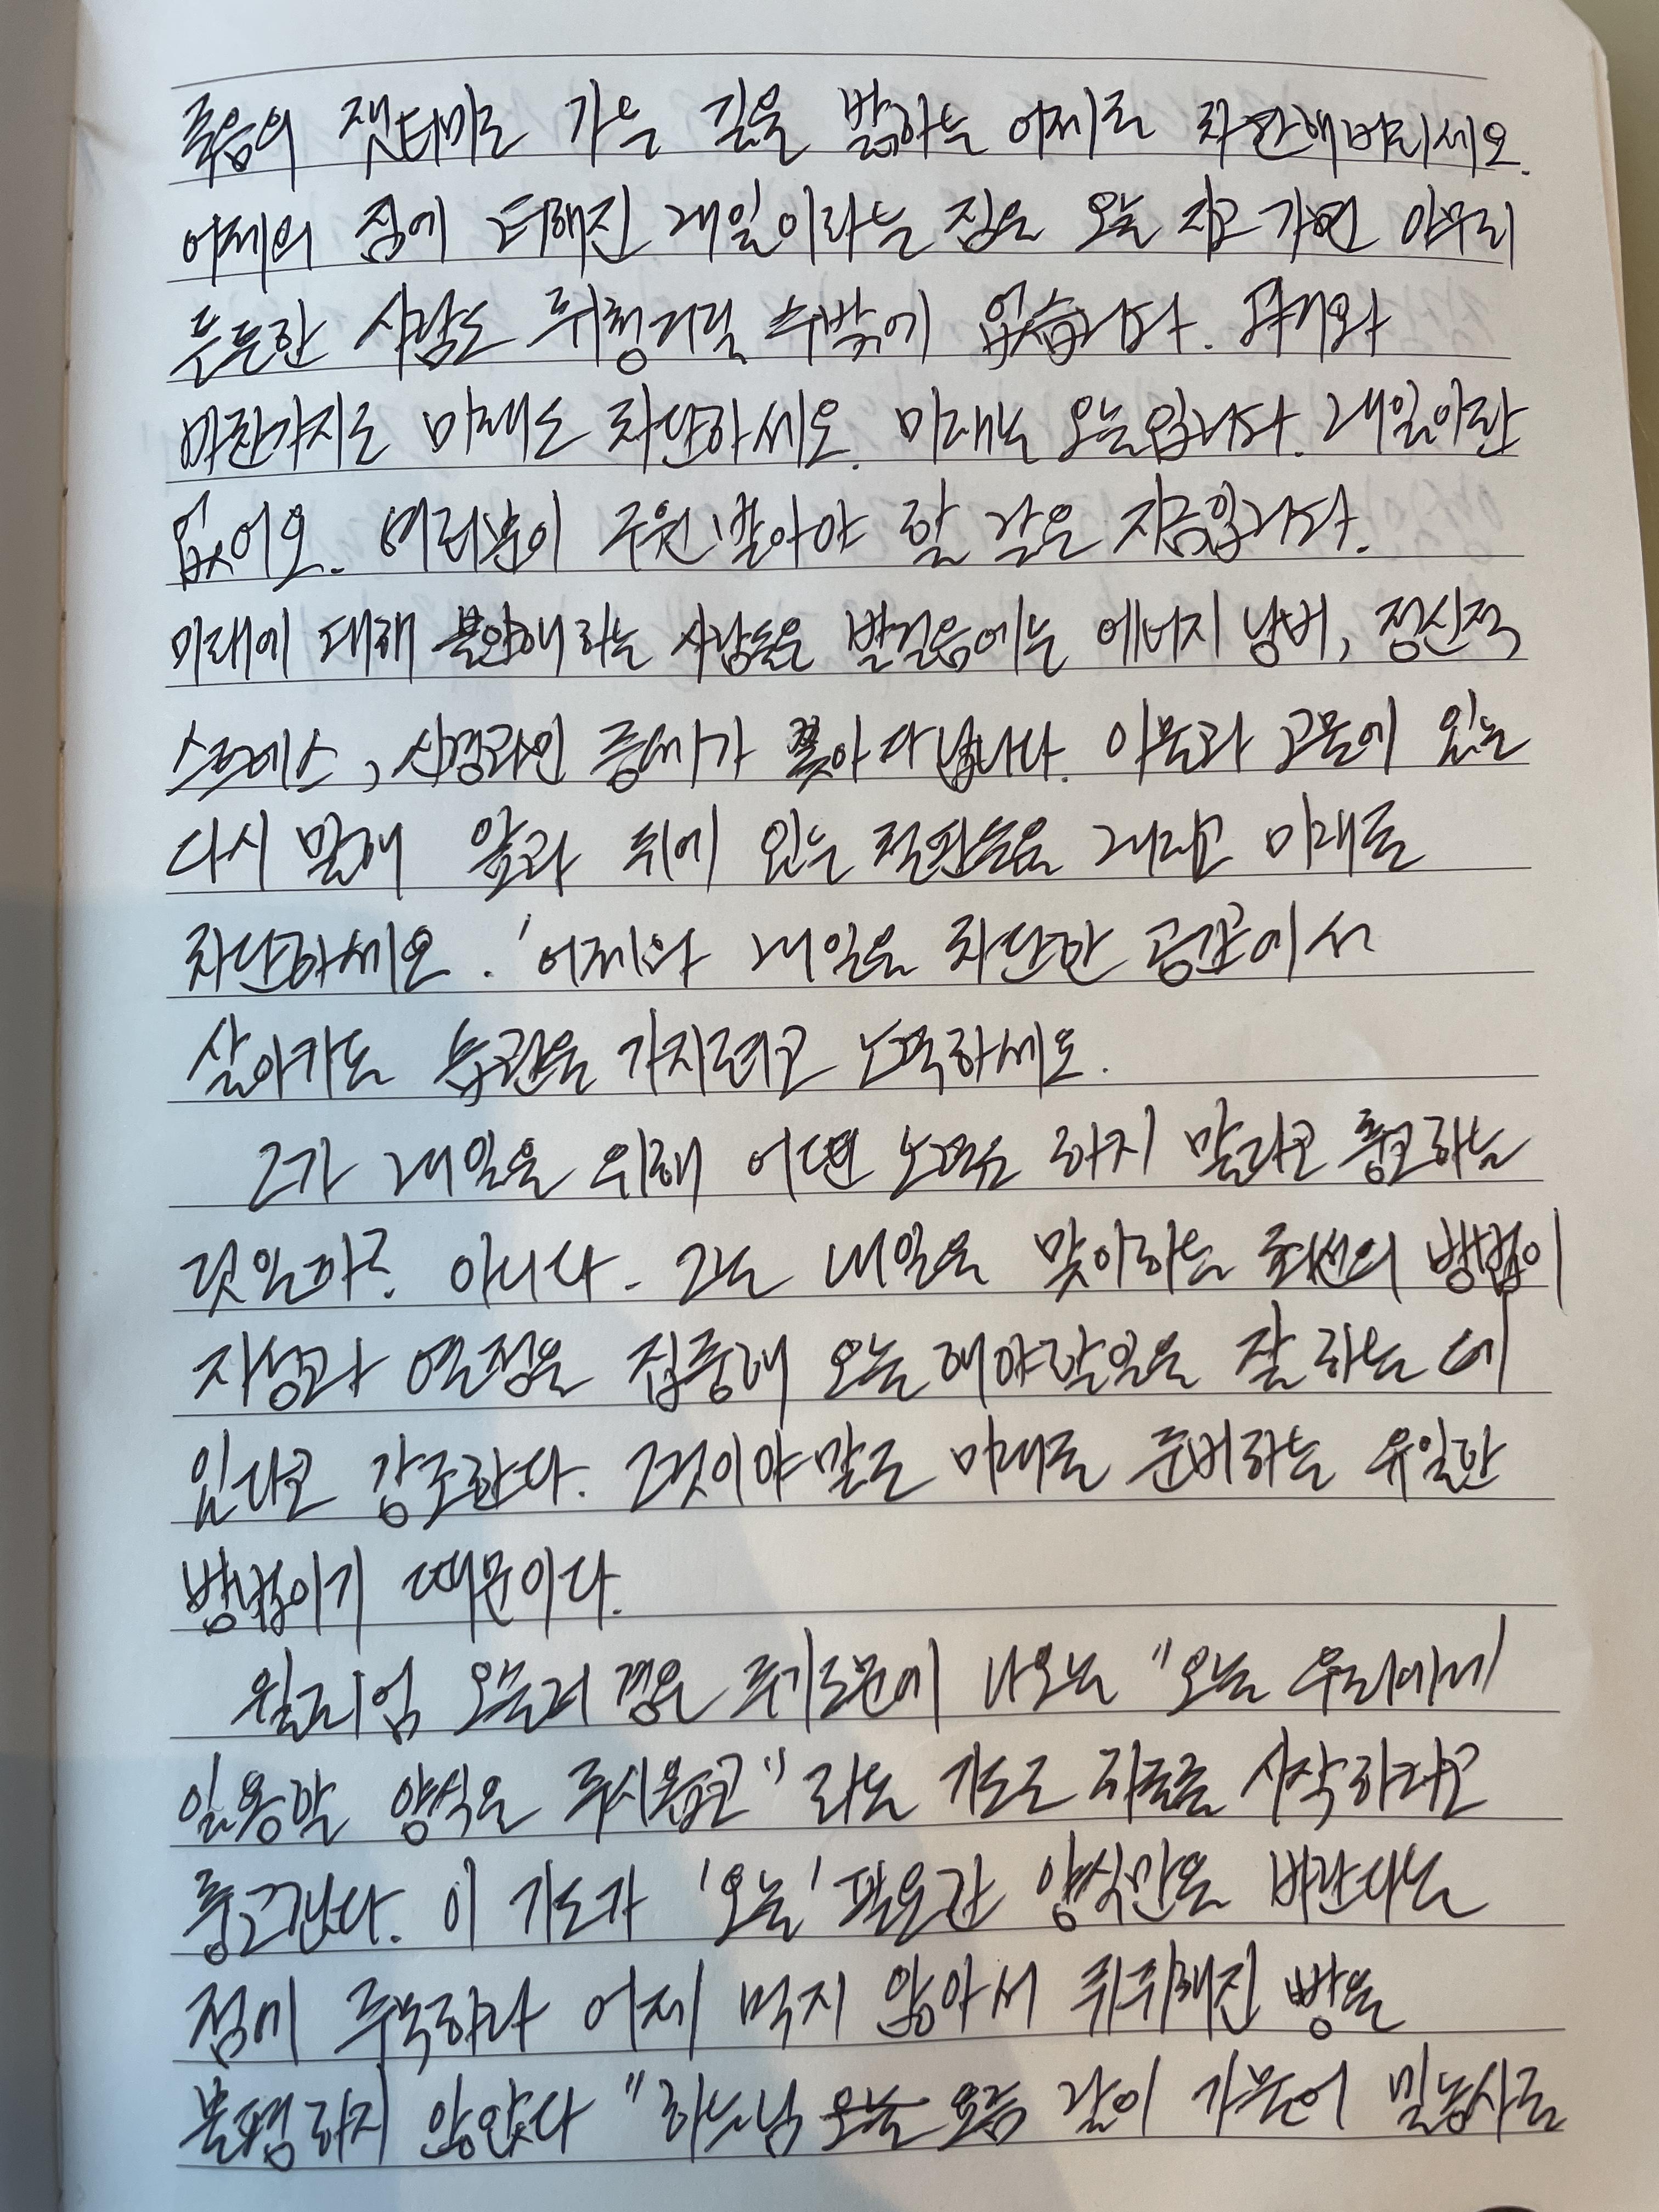 죽음의 잿더미로 가는 길을 밝히는 어제를 차단해버리세요.
어제의 짐에 더해진 내일이라는 짐을 오늘 지고 가면 아무리
튼튼한 사람도 휘청거릴 수밖에 없습니다. 과거와
마찬가지로 미래도 차단하세요. 미래는 오늘입니다. 내일이란
없어요. 여러분이 구원 받아야 할 날은 지금입니다.
미래에 대해 불안해 하는 사람들은 발걸음에는 에너지 낭비, 정신적
스트레스, 신경과민 증세가 쫓아다닙니다. 이물과 고물에 있는
다시 말해 앞과 뒤에 있는 격판들을 내리고 미래를
차단하세요. '어제와 내일을 차단한 공간에서
살아가는 습관을 가지려고 노력하세요.
그가 내일을 위해 어떤 노력도 하지 말라고 충고하는
것일까? 아니다. 그는 내일을 맞이하는 최선의 방법이
지성과 열정을 집중해 오늘 해야할일을 잘 하는 데
있다고 강조한다. 그것이야말로 미래를 준비하는 유일한
방법이기 때문이다.
윌리엄 오슬러 경은 주기도문에 나오는 "오늘 우리에게
일용할 양식을 주시옵고" 라는 기도로 하루를 시작하라고
충고한다. 이 기도가 '오늘' 필요한 양식만을 바란다는
점에 주목하라 어제 먹지 않아서 퀴퀴해진 빵을
불평하지 않았다 "하느님 오늘 요즘 같이 가물어 밀농사를